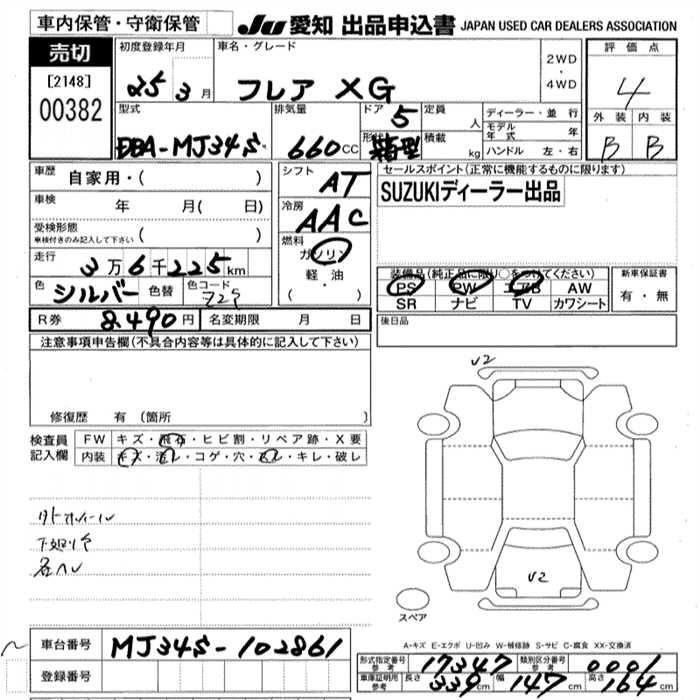 車内保管・守衛保管
JU 愛知 出品申込書 JAPAN USED CAR DEALERS ASSOCIATION
売切
[2148]
00382
初度登録年月
25 3 月
車名・グレード
フレア XG
2WD
・
4WD
評価点
4
外装 内装
B B
型式
DBA-MJ34S
排気量
660 CC
ドア 5
形状 箱型
定員 人
積載 kg
ディーラー・並行
モデル年式 年
ハンドル 左・右
車歴 自家用・( )
車検 年 月( 日)
受検形態
車検付きのみ記入して下さい ( )
走行 3万6千225km
色 シルバー 色替 色コード Z2S
シフト AT
冷房 AAC
燃料
ガソリン
軽・油
( ・ )
セールスポイント(正常に機能するものに限ります)
SUZUKIディーラー出品
装備品(純正品に限り○をつけてください)
PS PW エアB AW
SR ナビ TV カワシート
新車保証書
有・無
R券 8,490円 名変期限 月 日
後日品
注意事項申告欄(不具合内容等は具体的に記入して下さい)
修復歴 有 (箇所 )
検査員
記入欄
FW キズ・飛石・ヒビ割・リペア跡・X要
内装 キズ・汚レ・コゲ・穴・スレ・キレ・破レ
V2
V2
スペア
A-キズ E-エクボ U-凹み W-補修跡 S-サビ C-腐食 XX-交換済
車台番号 MJ34S-102861
登録番号
形式指定番号
参考 17347
類別区分番号
参考 0001
車庫証明用
参考 長さ 339cm 幅 147cm 高さ 164cm